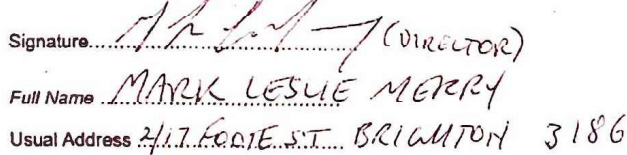 Signature (DIRECTOR)
Full Name MARK LESLIE MERRY
Usual Address 2/17 FOOTE ST BRIGHTON 3186